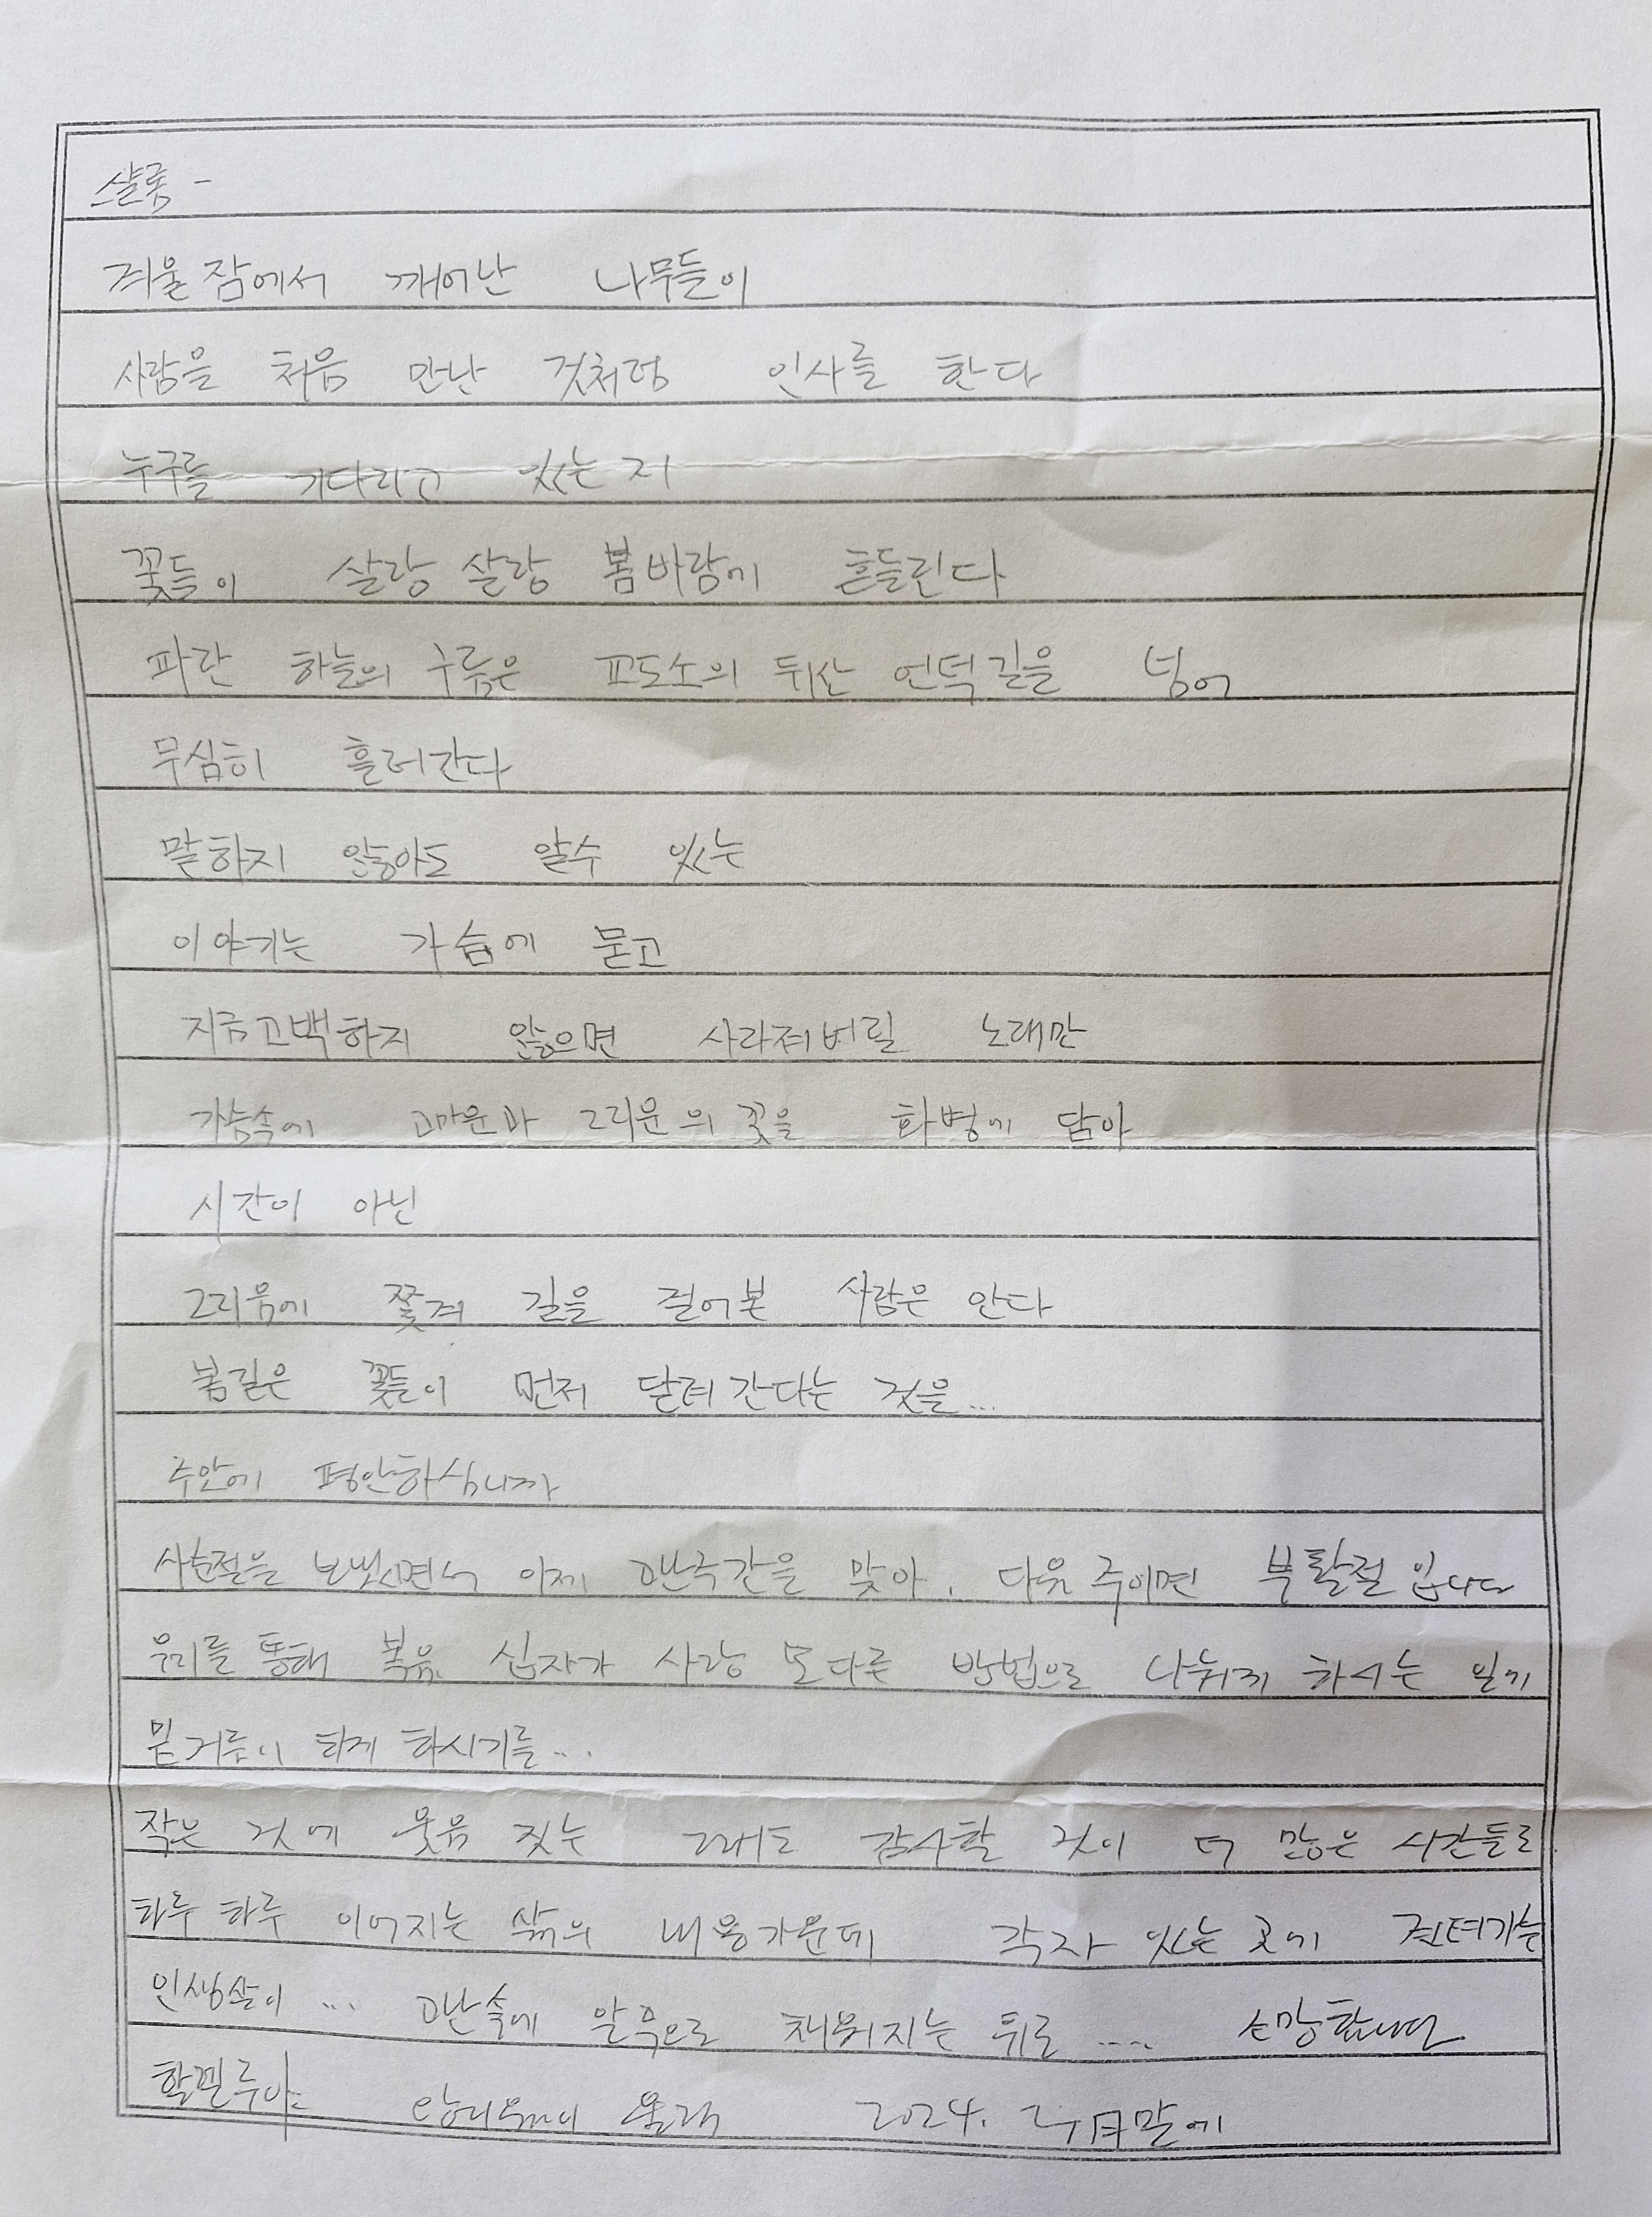 샬롬 -
겨울잠에서 깨어난 나무들이
사람을 처음 만난 것처럼 인사를 한다
누구를 기다리고 있는지
꽃들이 살랑 살랑 봄바람에 흔들린다
파란 하늘의 구름은 교도소의 뒤산 언덕길을 넘어
무심히 흘러간다
말하지 않아도 알수 있는
이야기는 가슴에 묻고
지금고백하지 않으면 사라져버릴 노래만
가슴속에 고마운과 그리운의 꽃을 화병에 담아
시간이 아닌
그리움에 쫓겨 길을 걸어본 사람은 안다
봄길은 꽃들이 먼저 달려간다는 것을...
주안에 평안하십니까
사순절을 보냈으면서 이제 고난주간을 맞아. 다음주이면 부활절입니다
우리를 통해 복음 십자가 사랑 또다른 방법으로 나눠지 하시는 일기
밑거름이 되게 하시기를...
작은 것에 웃음 짓는 그래도 감사할 것이 더 많은 시간들로
하루 하루 이어지는 삶의 내용가운데 각자 있는 곳에 견뎌가는
인생살이 ... 고난속에 알곡으로 채워지는 뒤로 .... 소망합니다
할렐루야 올림 2024. 말에